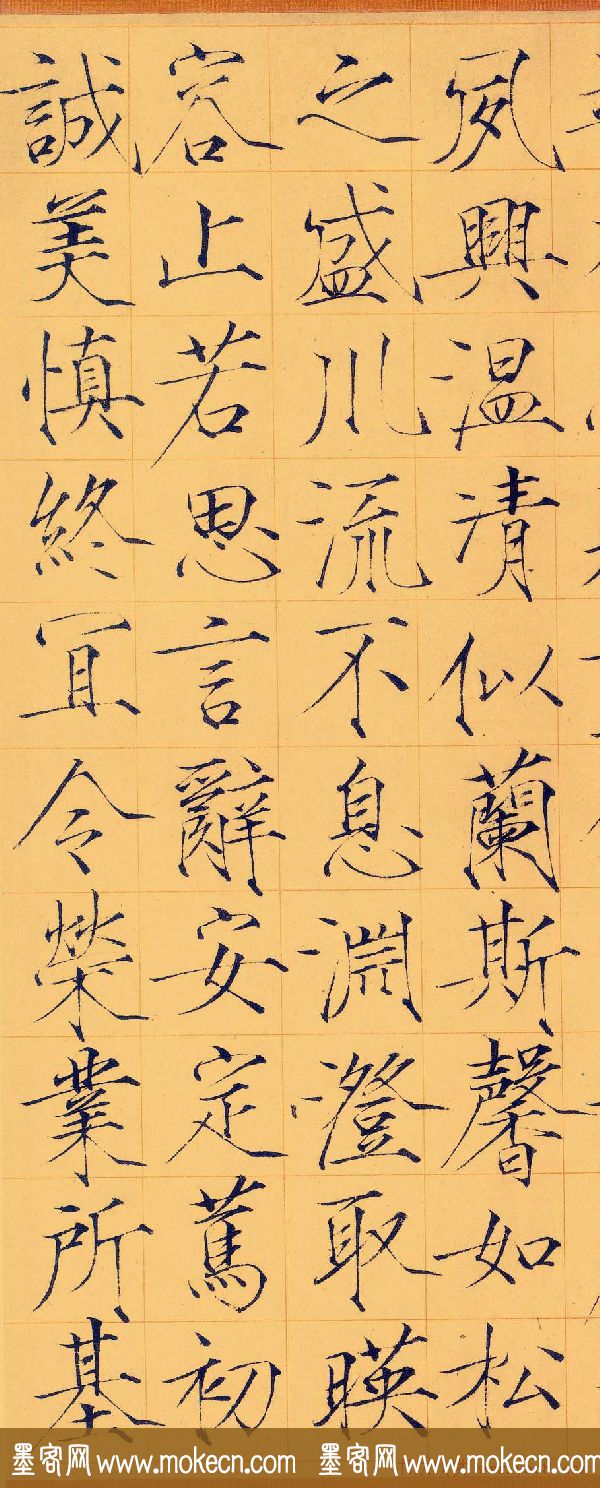 夙興温清似蘭斯馨如松
之盛川流不息淵澄取暎
容止若思言辭安定篤初
誠美慎終宜令榮業所基
墨客网 www.mokecn.com 墨客网 www.mokecn.com